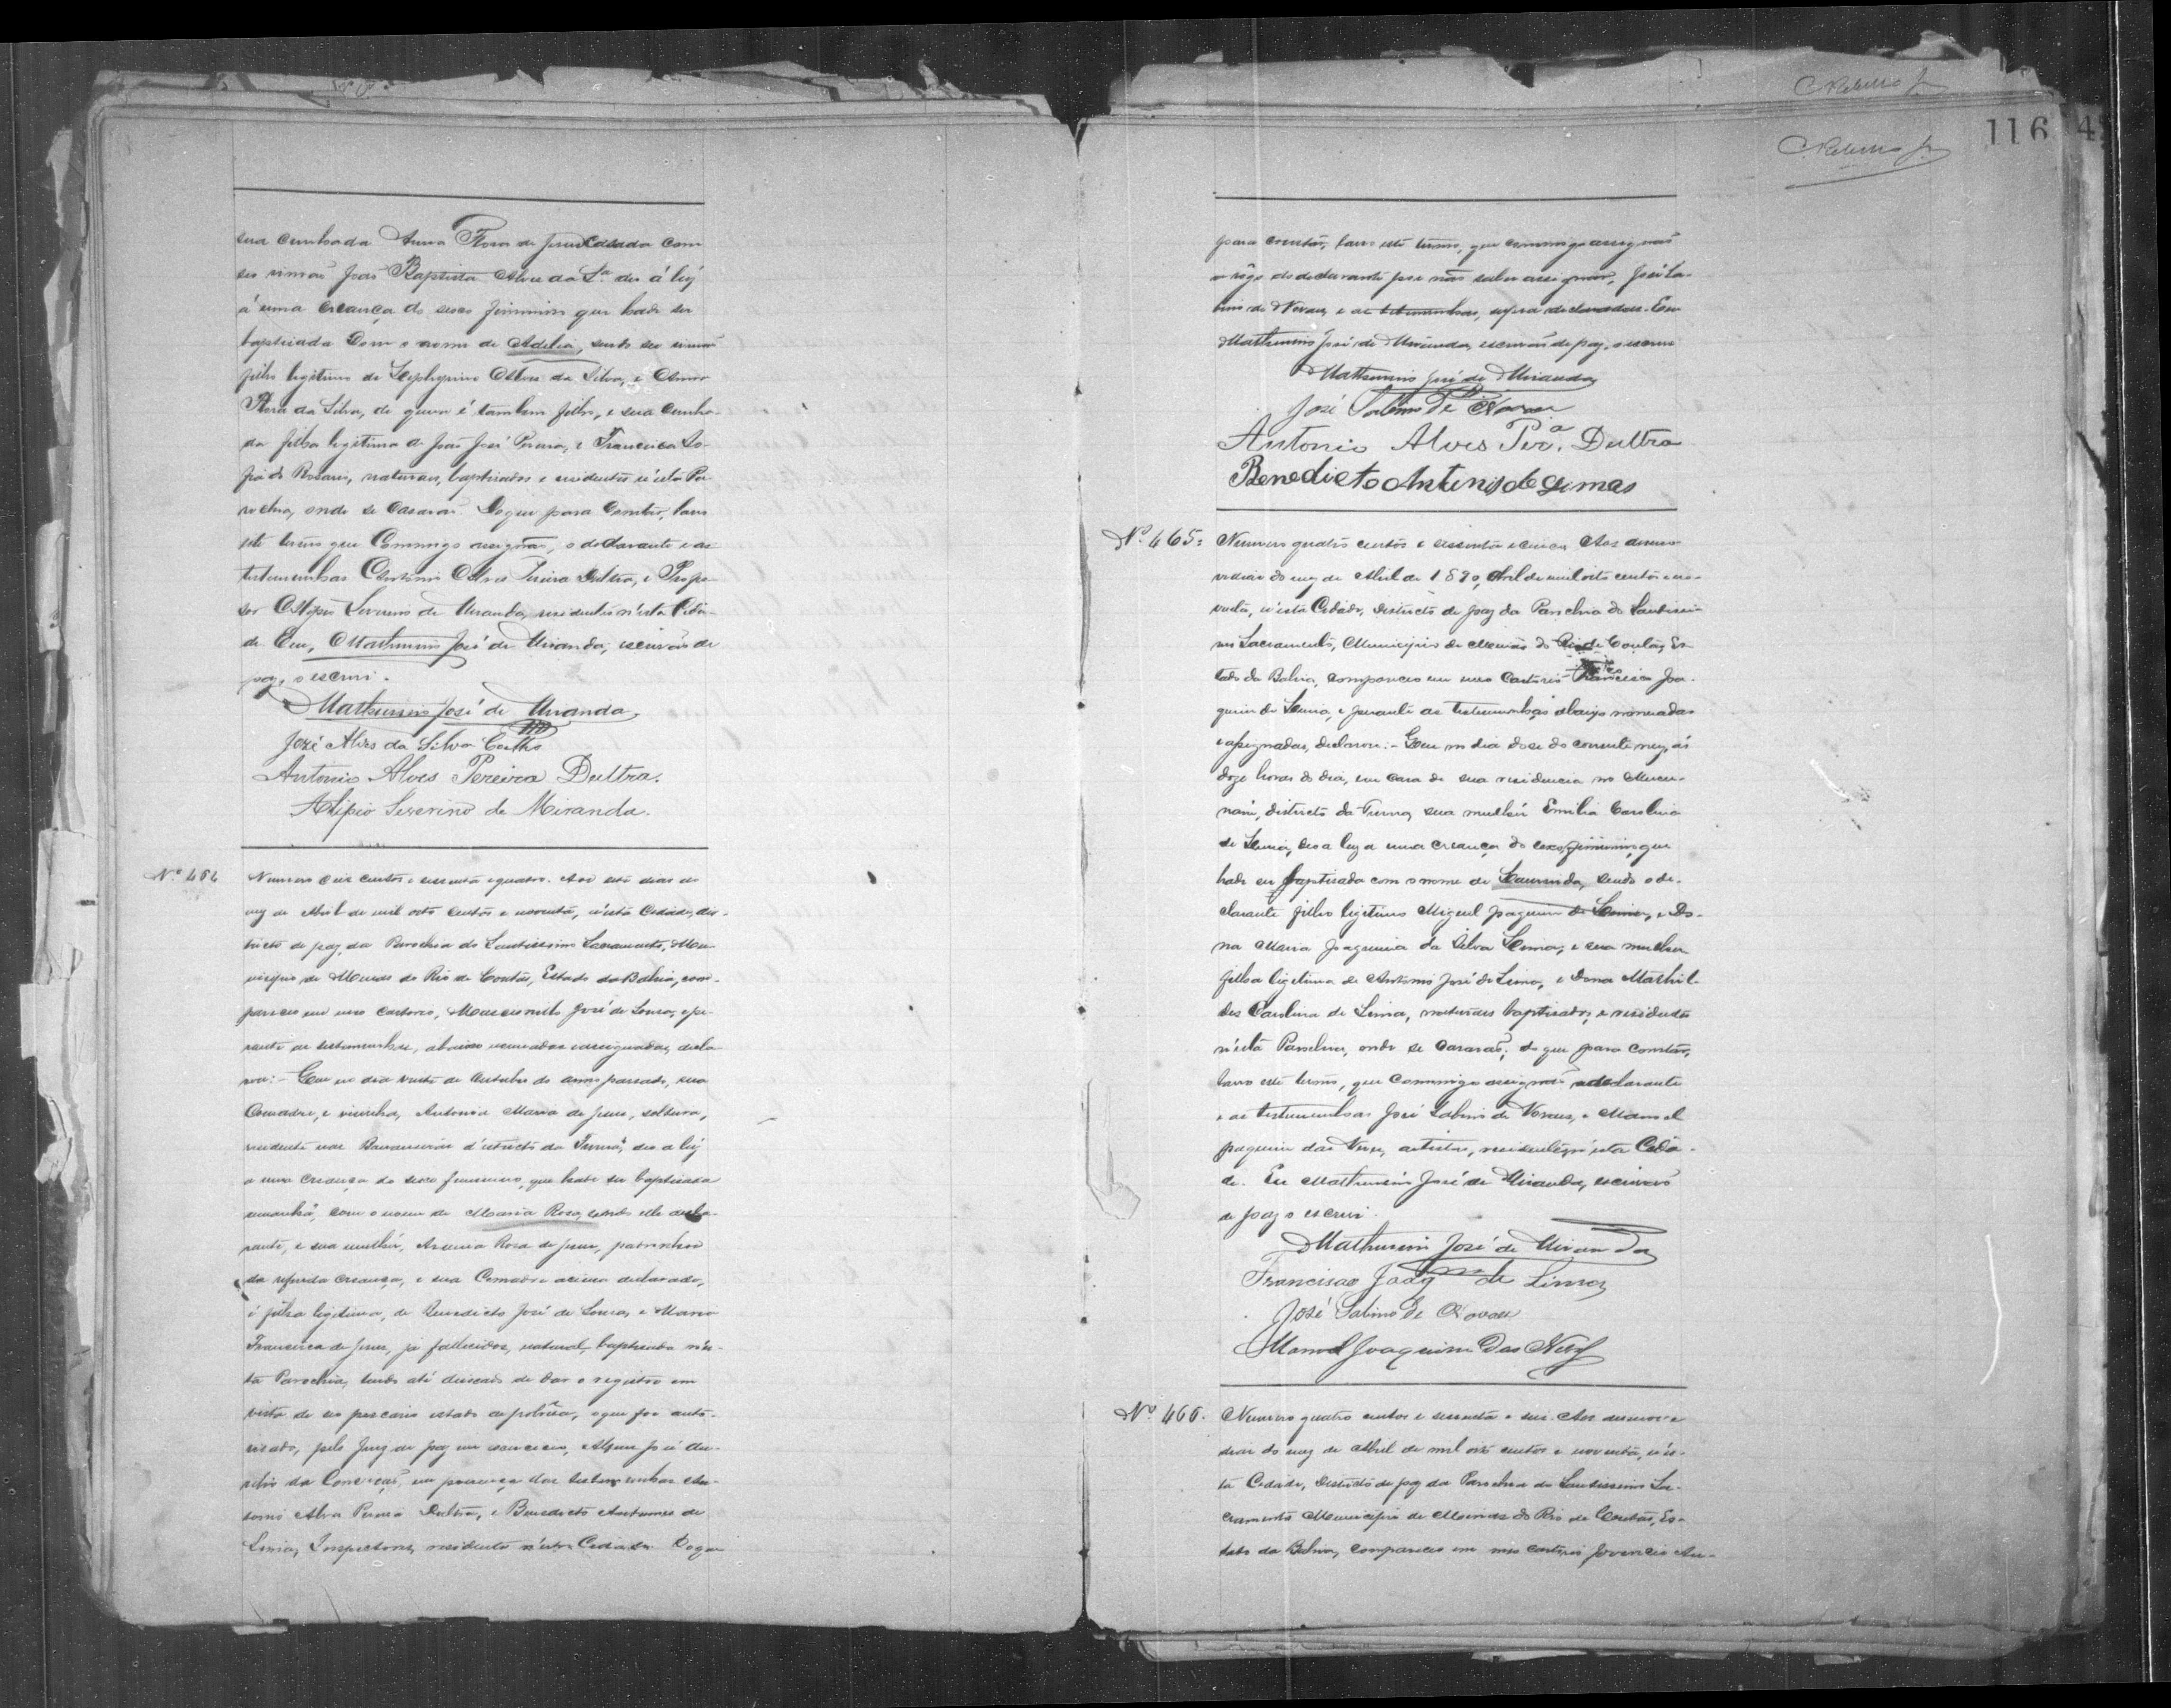 sua cunhada Anna Flora de Jesus casada com
seo irmão João Baptista Alves da Sª deo á luz
á uma creança do sexo feminino que hade ser
baptisada Com o nome de Adelia, sendo seo irmão
filho legitimo de Zephyrino Alves da Silva, e Anna
Rosa da Silva, de quem é tambem filho, e sua cunha-
da filha legitima de João José Pereira, e Francisca So-
fia do Rosario, naturaes, baptisados e residentes n'esta Pa-
rochia, onde se Casarão. Do que para Constar, lavro
este termo que Commigo assignão, o declarante e as
testemunhas Antonio Alves Pereira Dultra, e
Alipio Severino de Miranda, residentes n'esta Cida-
de. Eu, Mathurino José de Miranda, escrivão de
paz, o escrevi.
Mathurino José de Miranda
José Alves da Silva Coelho
Antonio Alves Pereira Dultra.
Alipio Severino de Miranda.
Nº 464
Numero centos e sessenta e quatro. Aos sete dias do
mez de Abril de mil oito centos e noventa, n'esta Cidade, dis-
tricto de paz da Parochia do Santissimo Sacramento, Mu-
nicipio de Minas do Rio de Contas, Estado da Bahia, com-
pareceo em meo Cartorio, Marcionillo José de Souza, e pe-
rante as testemunhas, abaixo nomeadas e assignadas, decla-
rou:- Que no dia vinte de Outubro do anno passado, sua
Comadre, e visinha, Antonia Maria de Jesus, solteira,
residente nas districto da Furna, deo a luz
a uma creança do sexo feminino, que hade ser baptisada
amanhã, com o nome de Maria Rosa, sendo elle decla-
rante, e sua mulher, Rosa de Jesus, padrinhos
da referida creança, e sua Comadre acima declarada,
é filha legitima, de Benedicto José de Souza, e Maria
Francisca de Jesus, já fallecidos, natural, baptisada n'es-
ta Parochia, tendo até deixado de dar o registro em
vista de seo precario estado de pobreza, o que foi auto-
risado, pelo Juiz de paz em exercicio, José
da Conceição em presença das testemunhas An-
tonio Alves Pereira Dultra, e Benedicto Antunes de
Lima, Inspectores, residente n'esta Cidade. Do que
C Rebello Jr
C. Rebello Jr
116 4
para constar, lavro este termo, que commigo assignão
a rôgo do declarante por não saber assignar, José Sa-
bino de Novaes, e as testemunhas, supra declaradas. Eu
Mathurino José de Miranda, escrivão de paz, o escrevi
Mathurino José de Miranda
José Sabino de Novaes
Antonio Alves Perª. Dultra
Benedicto Antunis de Lemas
Nº 465:
Numero quatro centos e sessenta e cinco. Aos
dias do mez de Abril de 1890, Abril de mil oito centos e no-
venta, n'esta Cidade, Districto de paz da Parochia do Santissi-
mo Sacramento, Municipio de Minas do Rio de Contas, Es-
tado da Bahia, compareceo em meo Cartorio Francisco Joa-
quim de Lima, e perante as testemunhas abaixo nomeadas
e assignadas, declarou:- Que no dia doze do corrente mez, ás
doze horas do dia, em casa de sua residencia no
districto da Furna, sua mulher Emilia Carolina
de Lima, deo a luz a uma creança do sexo feminino, que
hade ser baptisada com o nome de Laurinda, sendo o de-
clarante filho legitimo Miguel Joaquim de Lima, e Do-
na Maria Joaquina da Silva Lima, e sua mulher
filha legitima de Antonio José de Lima, e Dona Mathil-
des Carolina de Lima, naturaes baptisados, e residentes
n'esta Parochia, onde se Casarão; do que para Constar,
lavro este termo, que Commigo assignão o declarante
e as testemunhas José Sabino de Novaes, e Manoel
Joaquim das Neves, artistas, residentes n'esta Cida-
de. Eu Mathurino José de Miranda, escrivão
de paz o escrevi.
Mathurino José de Miranda
Francisco Joaqm de Lima
José Sabino de Novaes
Manoel Joaquim Das Neves
Nº 466.
Numero quatro centos e sessenta e seis. Aos desenove
dias do mez de Abril de mil oito centos e noventa, n'es-
ta Cidade, Districto de paz da Parochia do Santissimo Sa-
cramento Municipio de Minas do Rio de Contas, Es-
tado da Bahia, compareceo em meo cartorio Jovencio An-